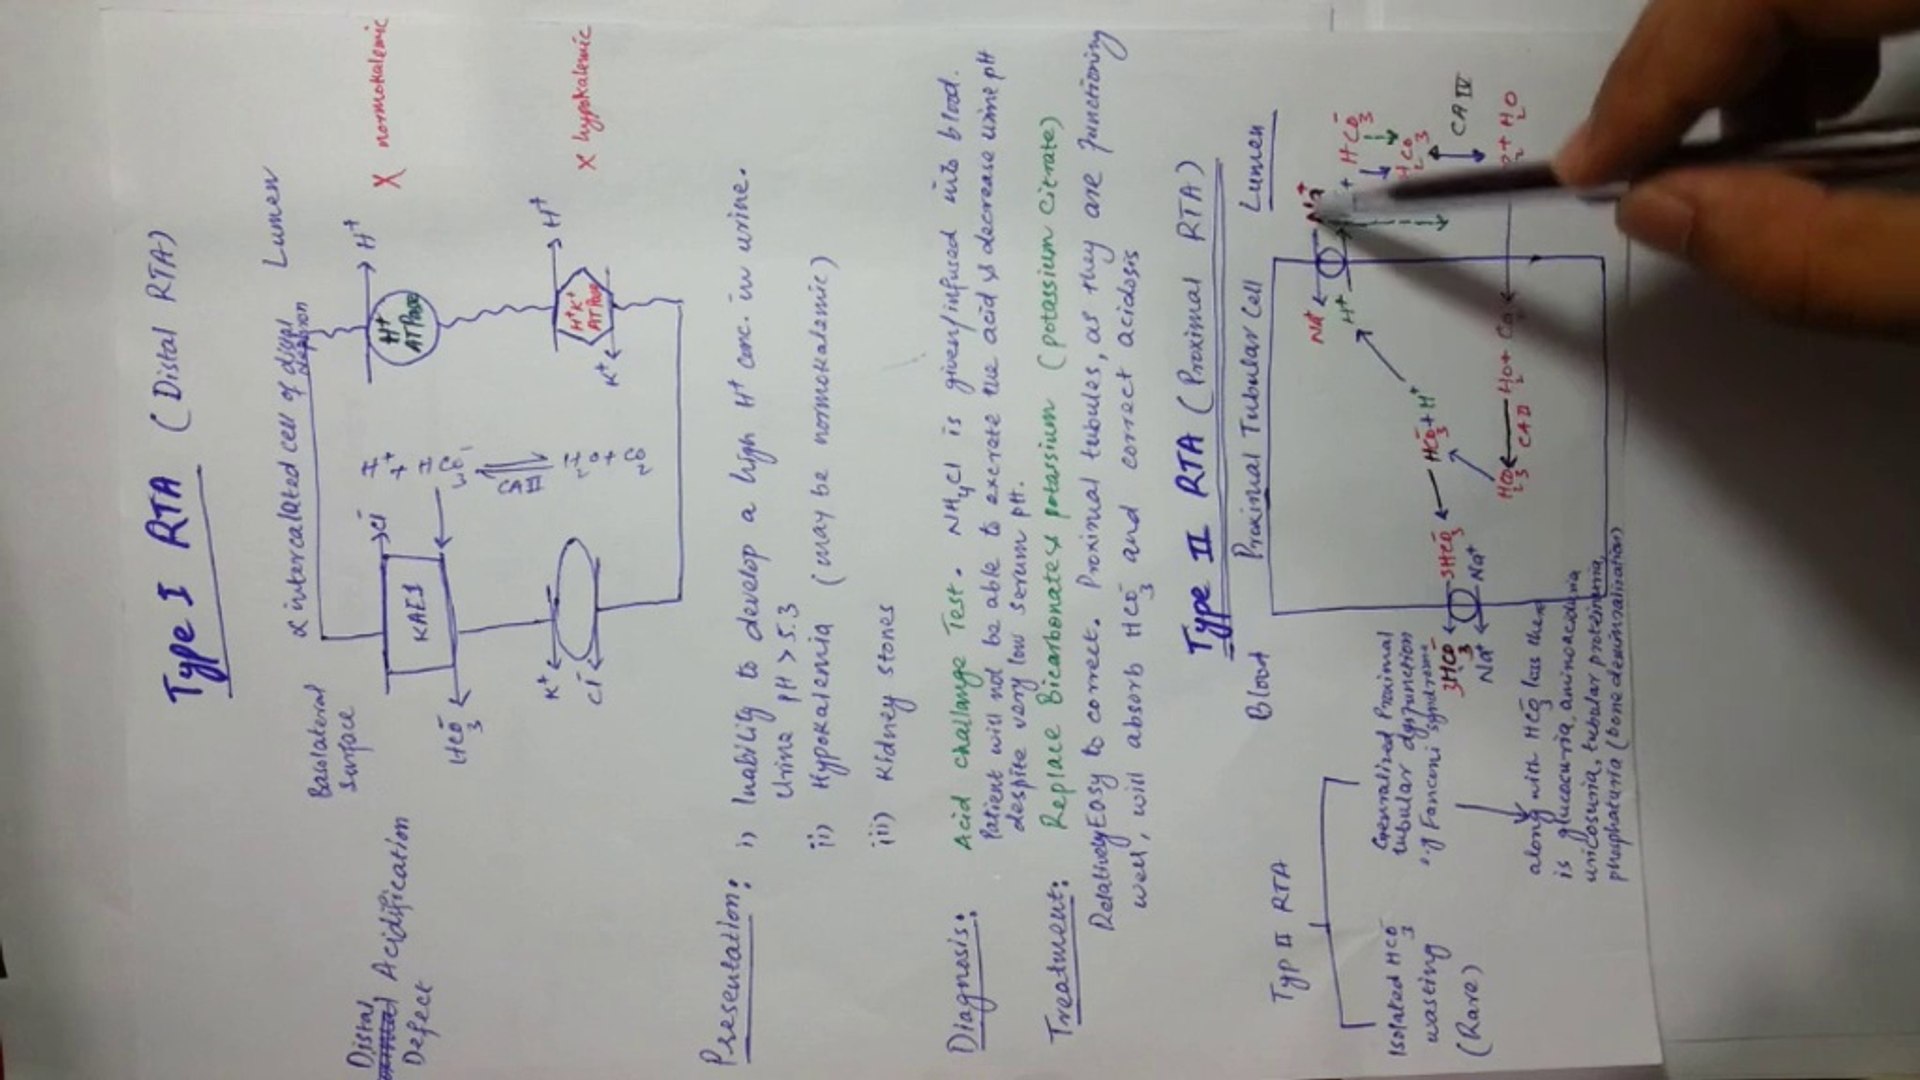 Type I RTA (Distal RTA)
α intercalated cell of distal nephron
Lumen
Basolateral
surface
Distal
Acidification
Defect
KAE1
Cl⁻
HCO₃⁻
H⁺
+
HCO₃⁻
CA II
H₂O + CO₂
H⁺
ATPase
H⁺
X normokalemic
K⁺
Cl⁻
H⁺K⁺
ATPase
K⁺
H⁺
X hypokalemic
Presentation:
i) Inability to develop a high H⁺ conc. in urine.
Urine PH > 5.3
ii) Hypokalemia (may be normokalemic)
iii) Kidney stones
Diagnosis: Acid challange Test. NH₄Cl is given/infused into blood.
Patient will not be able to excrete the acid & decrease urine pH
despite very low serum pH.
Treatment: Replace Bicarbonate & potassium (potassium citrate)
Relatively Easy to correct. Proximal tubules, as they are functioning
well, will absorb HCO₃⁻ and correct acidosis
Type II RTA (Proximal RTA)
Blood
Proximal Tubular Cell
Lumen
Na⁺
Na⁺
H⁺
HCO₃⁻
H₂CO₃
CA IV
+ H₂O
HCO₃⁻ + H⁺
H₂CO₃
CA II
H₂O +
3HCO₃⁻
Na⁺
3HCO₃⁻
Na⁺
Typ II RTA
Isolated HCO₃⁻
wasting
(Rare)
Generalized Proximal
tubular dysfunction
e.g Fanconi syndrome
along with HCO₃⁻ loss there
is glucosuria, aminoaciduria
uricosuria, tubular proteinuria,
phosphaturia (bone demineralization)